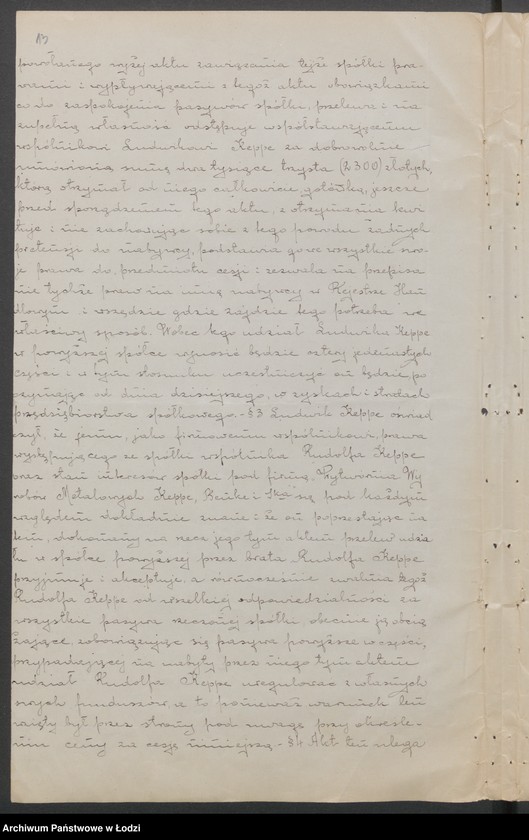 13
powołanego wyżej aktu zawiązania tejże spółki pra-
wami i wypływającemi z tegoż aktu obowiązkami
co do zaspokojenia pasywów spółki, przelewa i na
zupełną własność odstępuje współstawającemu
wspólnikowi Ludwikowi Keppe za dobrowolnie
umówioną sumę dwa tysiące trzysta (2300) złotych,
którą otrzymał od niego całkowicie gotówką, jeszcze
przed sporządzeniem tego aktu, z otrzymania kwi-
tuje i nie zachowując sobie z tego powodu żadnych
pretensji do nabywcy, podstawia go we wszystkie swo-
je prawa do przedmiotu cesji i zezwala na przepisa-
nie tychże praw na imię nabywcy w Rejestrze Han
dlowym i wszędzie gdzie zajdzie tego potrzeba we
właściwy sposób. Wobec tego udział Ludwika Keppe
w powyższej spółce wynosić będzie cztery jedenastych
części i w tym stosunku uczestniczyć on będzie, po
czynając od dnia dzisiejszego, w zyskach i stratach
przedsiębiorstwa spółkowego. - §3 Ludwik Keppe oświad
czył, że jemu, jako firmowemu wspólnikowi, prawa
występującego ze spółki wspólnika Rudolfa Keppe
oraz stan interesów spółki pod firmą "Wytwórnia Wy
robów Metalowych Keppe, Benke i S-ka" są pod każdym
względem dokładnie znane i że on poprzestając na
tem, dokonany na rzecz jego tym aktem przelew udzia
łu w spółce powyższej przez brata Rudolfa Keppe
przyjmuje i akceptuje, a równocześnie zwalnia tegoż
Rudolfa Keppe od wszelkiej odpowiedzialności za
wszystkie pasywa rzeczonej spółki obecnie ją obcią
żające, zobowiązując się pasywa powyższe w części,
przypadającej na nabyty przez niego tym aktem
udział Rudolfa Keppe uregulować z własnych
swych funduszów, a to ponieważ warunek ten
wzięty był przez strony pod uwagę przy określe-
niu ceny za cesję niniejszą. - §4 Akt ten ulega
Archiwum Państwowe w Łodzi